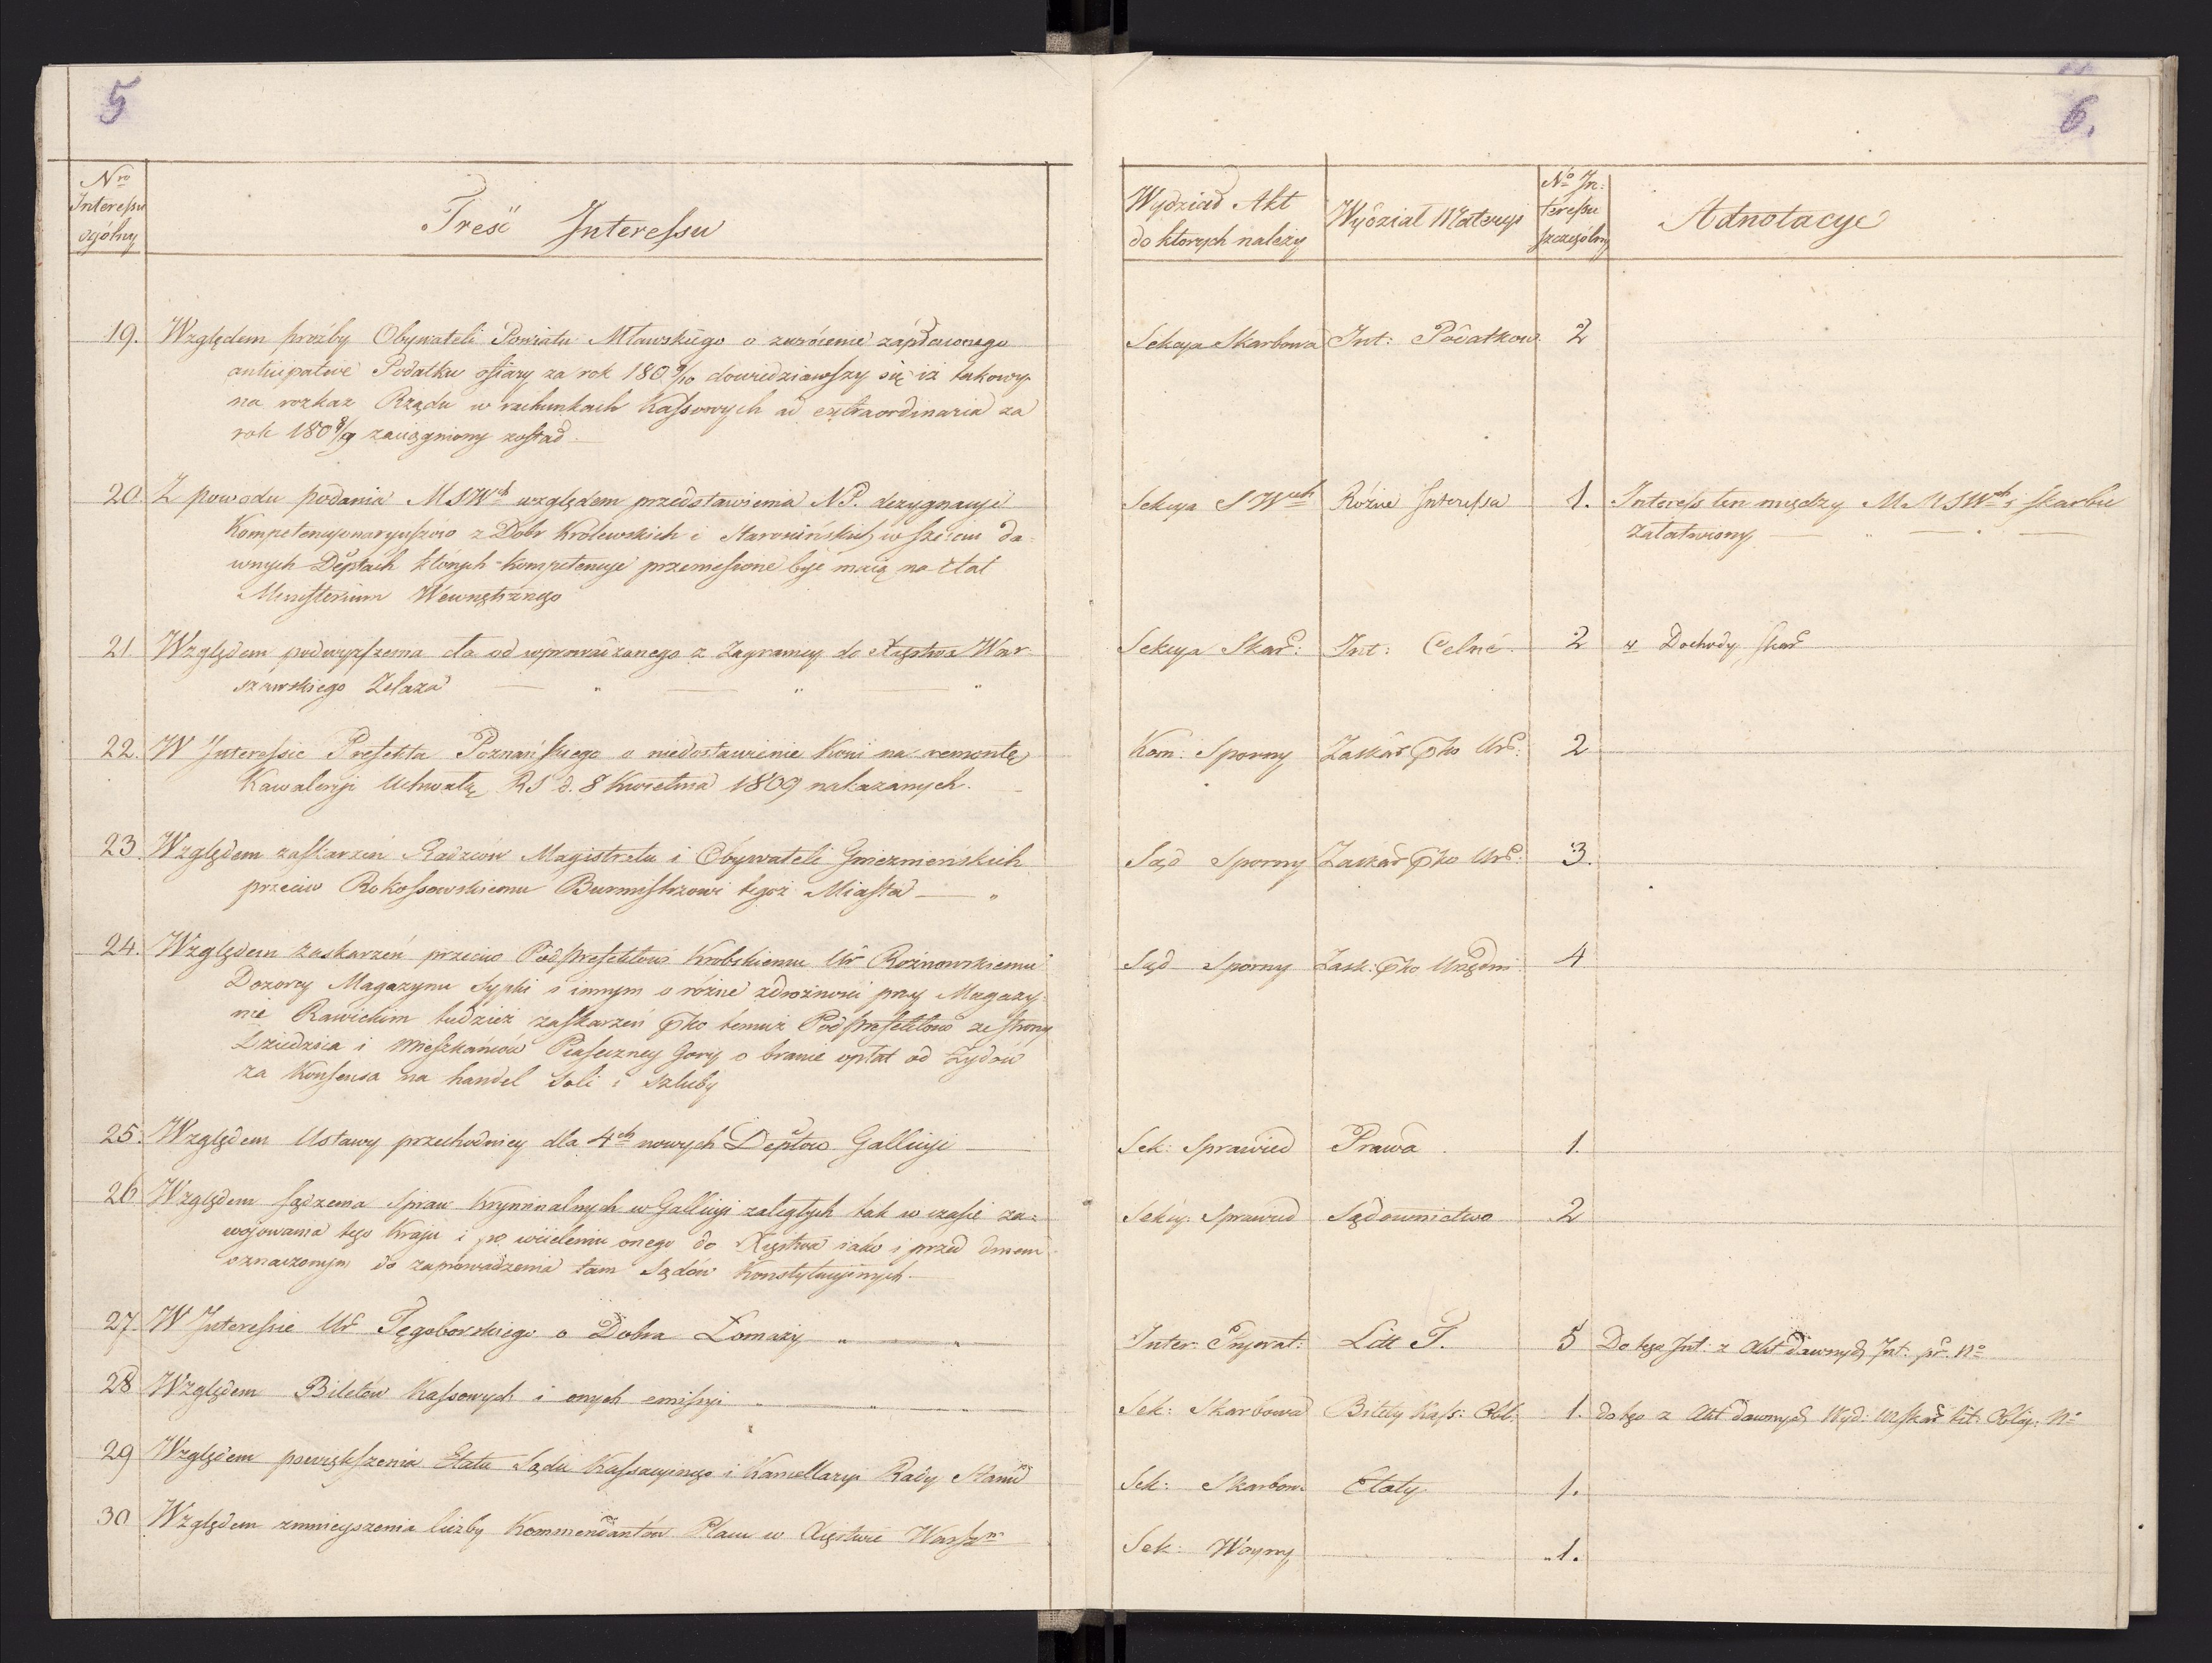 5
6.
Nro
Interessu
ogólny
Treść Interessu
Wydział Akt
do ktorych należy
Wydział Materyi
No In:
teressu
szczególny
Adnotacye
19. Względem prozby Obywateli Powiatu Mławskiego o zwrócenie zapłaconego
anticipative Podatku ofiary za rok 1809/10 dowiedziawszy się iż takowy
na rozkaz Rządu w rachunkach Kassowych ad extraordinaria za
rok 1808/9 zaciągniony został
Sekcya Skarbowa Int: Podatkow 2
20. Z powodu podania MSWch względem przedstawienia NP. dezygnacyi
Kompetencyonaryuszów z Dobr Królewskich i Starościńskich w sześciu da-
wnych Deptach których Kompetencye przeniesione być maią na Etat
Ministerium Wewnętrznego
Sekcya SWch Rożne Interessa 1. Interess ten między MMSWch i Skarbu
załatwiony
21. Względem podwyższenia cła od wprowadzanego z Zagranicy do Xięstwa War-
szawskiego Żelaza
Sekcya Skar: Int: Celne 2 w Dochody Skar
22. W Interessie Prefekta Poznańskiego o niedostawienie Koni na remontę
Kawaleryi Uchwałą RS d. 8 Kwietnia 1809 nakazanych.
Kom: Sporny Zaskar pko Urz: 2
23. Względem zaskarzeń Radzców Magistratu i Obywateli Gnieznieńskich
przeciw Rokossowskiemu Burmistrzowi tegoż Miasta
Sąd Sporny Zaskar pko Urz: 3.
24. Względem zaskarzeń przeciw Podprefektowi Krobskiemu Ur Rożnowskiemu
Dozorcy Magazynu Sypki i innym o różne zdrożności przy Magazy-
nie Rawickim tudzież zaskarzeń pko temuż Podprefektowi ze strony
Dziedzica i Mieszkańców Piaseczney Gory o branie opłat od Żydów
za Konsensa na handel Soli i szluby
Sąd Sporny Zask: pko Urzędni 4
25. Względem Ustawy przechodniey dla 4ch nowych Deptow Gallicyi
Sek: Sprawied Prawa 1.
26. Względem sądzenia Spraw Kryminalnych w Gallicyi zaległych tak w czasie za-
woiowania tego Kraju i po wcieleniu onego do Xięstwa iako i przed dniem
oznaczonym do zaprowadzenia tam Sądów Konstytucyinych
Sekcy: Sprawied Sądownictwo 2
27. W Interessie Ur Tęgoborskiego o Dobra Łomazy
Inter: Prywat: Litt T. 5 Do tego Int: z Akt dawnych Int: pr. No
28 Względem Biletów Kassowych i onych emissyi
Sek: Skarbowa Bilety Kass: Obl: 1. do tego z Akt dawnych Wyd: Skar lit: Oblig: No
29 Względem powiększenia Etatu Sądu Kassacyinego i Kancellaryi Rady Stanu
Sek: Skarbow: Etaty 1.
30 Względem zmnieyszenia liczby Kommendantów Placu w Xięstwie Warszm
Sek: Woyny 1.